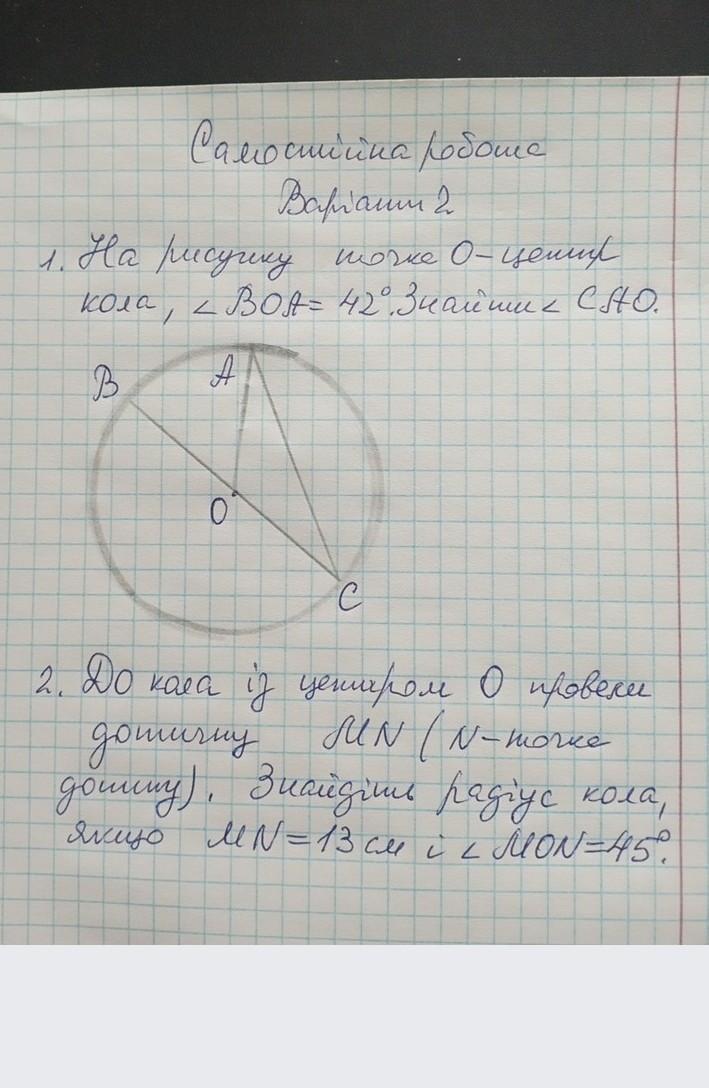 Самостійна робота
Варіант 2
1. На рисунку точка О-центр
кола, ∠ВОА = 42°. Знайти ∠ САО.
В
А
О
С
2. До кола із центром О провели
дотичну MN (N-точка
дотику). Знайдіть радіус кола,
якщо MN=13 см і ∠MON=45°.